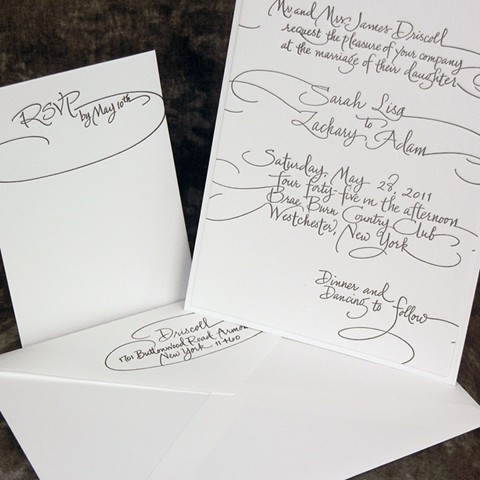 RSVP by May 10th
Mr and Mrs James Driscoll
request the pleasure of your company
at the marriage of their daughter
Sarah Lisa
to
Zachary Adam
Saturday, May 28, 2011
four forty-five in the afternoon
Brae Burn Country Club
Westchester, New York
Dinner and
Dancing to follow
Driscoll
1701 Buttonwood Road, Armonk
New York 11460